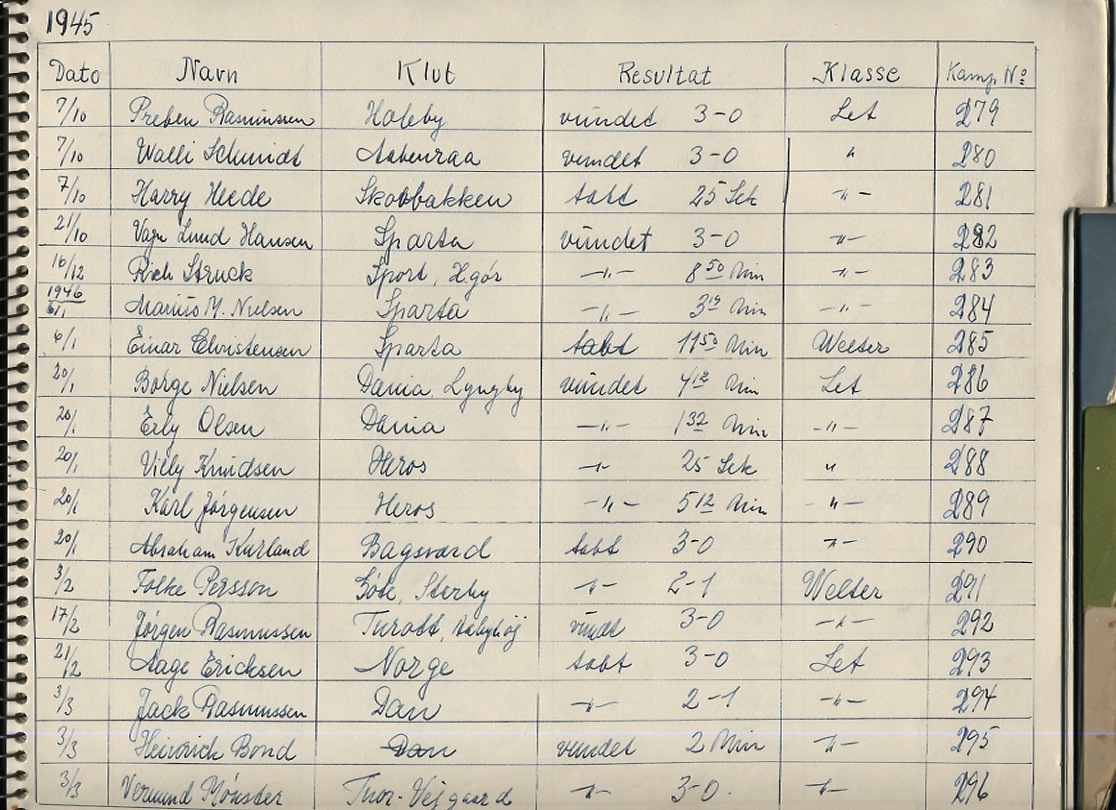 1945
Dato Navn Klub Resultat Klasse Kamp No
7/10 Preben Rasmussen Holeby vundet 3-0 Let 279
7/10 Walli Schmidt Aabenraa vundet 3-0 " 280
7/10 Harry Heede Skovbakken tabt 25 Sek -"- 281
21/10 Vagn Lund Hansen Sparta vundet 3-0 -"- 282
16/12 Rich Struck Sport, H.gór -"- 8 50 Min -"- 283
1946
6/1 Marius M. Nielsen Sparta -"- 3 19 Min -"- 284
6/1 Einar Christensen Sparta tabt 11 50 Min Welter 285
20/1 Börge Nielsen Dania, Lyngby vundet 4 12 Min Let 286
20/1 Erly Olsen Dania -"- 1 32 Min -"- 287
20/1 Villy Knudsen Heros -"- 25 Sek " 288
20/1 Karl Jörgensen Heros -"- 5 12 Min -"- 289
20/1 Abraham Kurland Bagsværd tabt 3-0 -"- 290
3/2 Folke Persson -"- 2-1 Welter 291
17/2 Jörgen Rasmussen Thrott, Aabyhöj vundt 3-0 -"- 292
21/2 Aage Ericksen Norge tabt 3-0 Let 293
3/3 Jack Rasmussen Dan -"- 2-1 -"- 294
3/3 Heinrich Bond Dan vundet 2 Min -"- 295
3/3 Vermund Mónster Thor-Vejgaard -"- 3-0. -"- 296